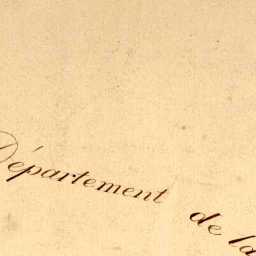 Département de la